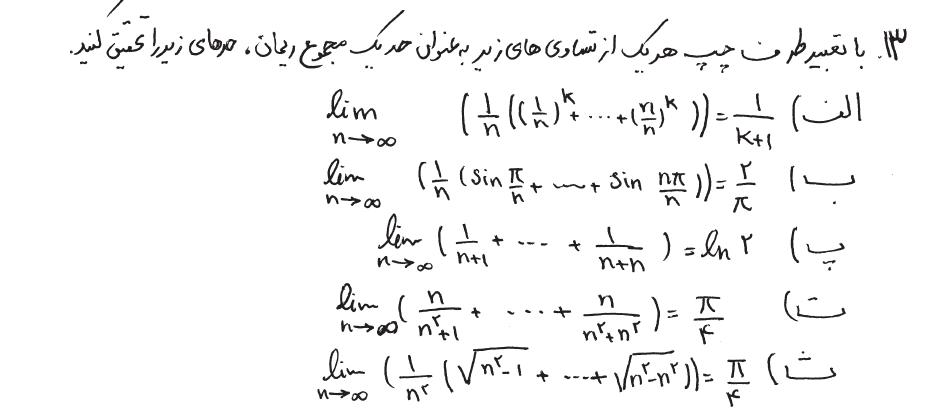 ۱۳. با تعبیر طرف چپ هریک از تساوی های زیر به عنوان حد یک مجموع ریمان، حدهای زیر را تحقیق کنید.
الف) lim n→∞ (1/n ((1/n)^k + ... + (n/n)^k)) = 1/(k+1)
ب) lim n→∞ (1/n (sin π/n + ... + sin nπ/n)) = ۲/π
پ) lim n→∞ (1/(n+1) + ... + 1/(n+n)) = ln ۲
ت) lim n→∞ (n/(n^۲+1) + ... + n/(n^۲+n^۲)) = π/۴
ث) lim n→∞ (1/n^۲ (√(n^۲-1) + ... + √(n^۲-n^۲))) = π/۴